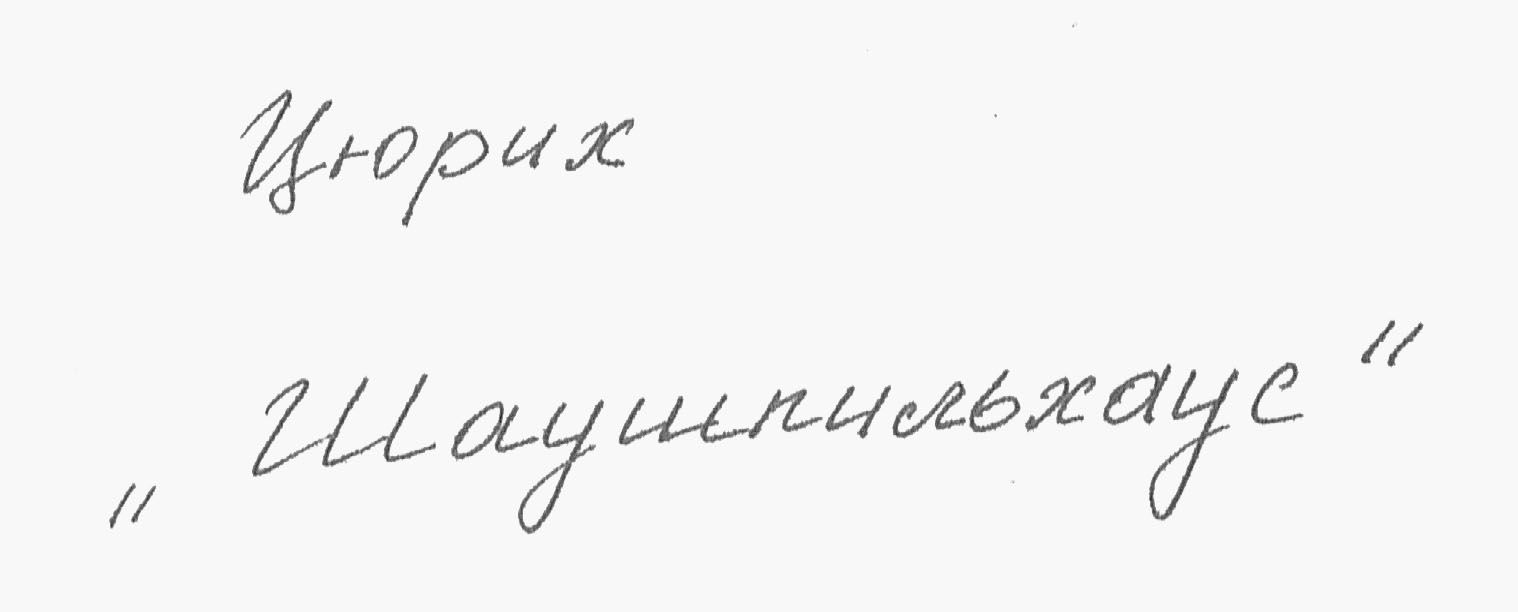 Цюрих
„Шаушпильхаус“